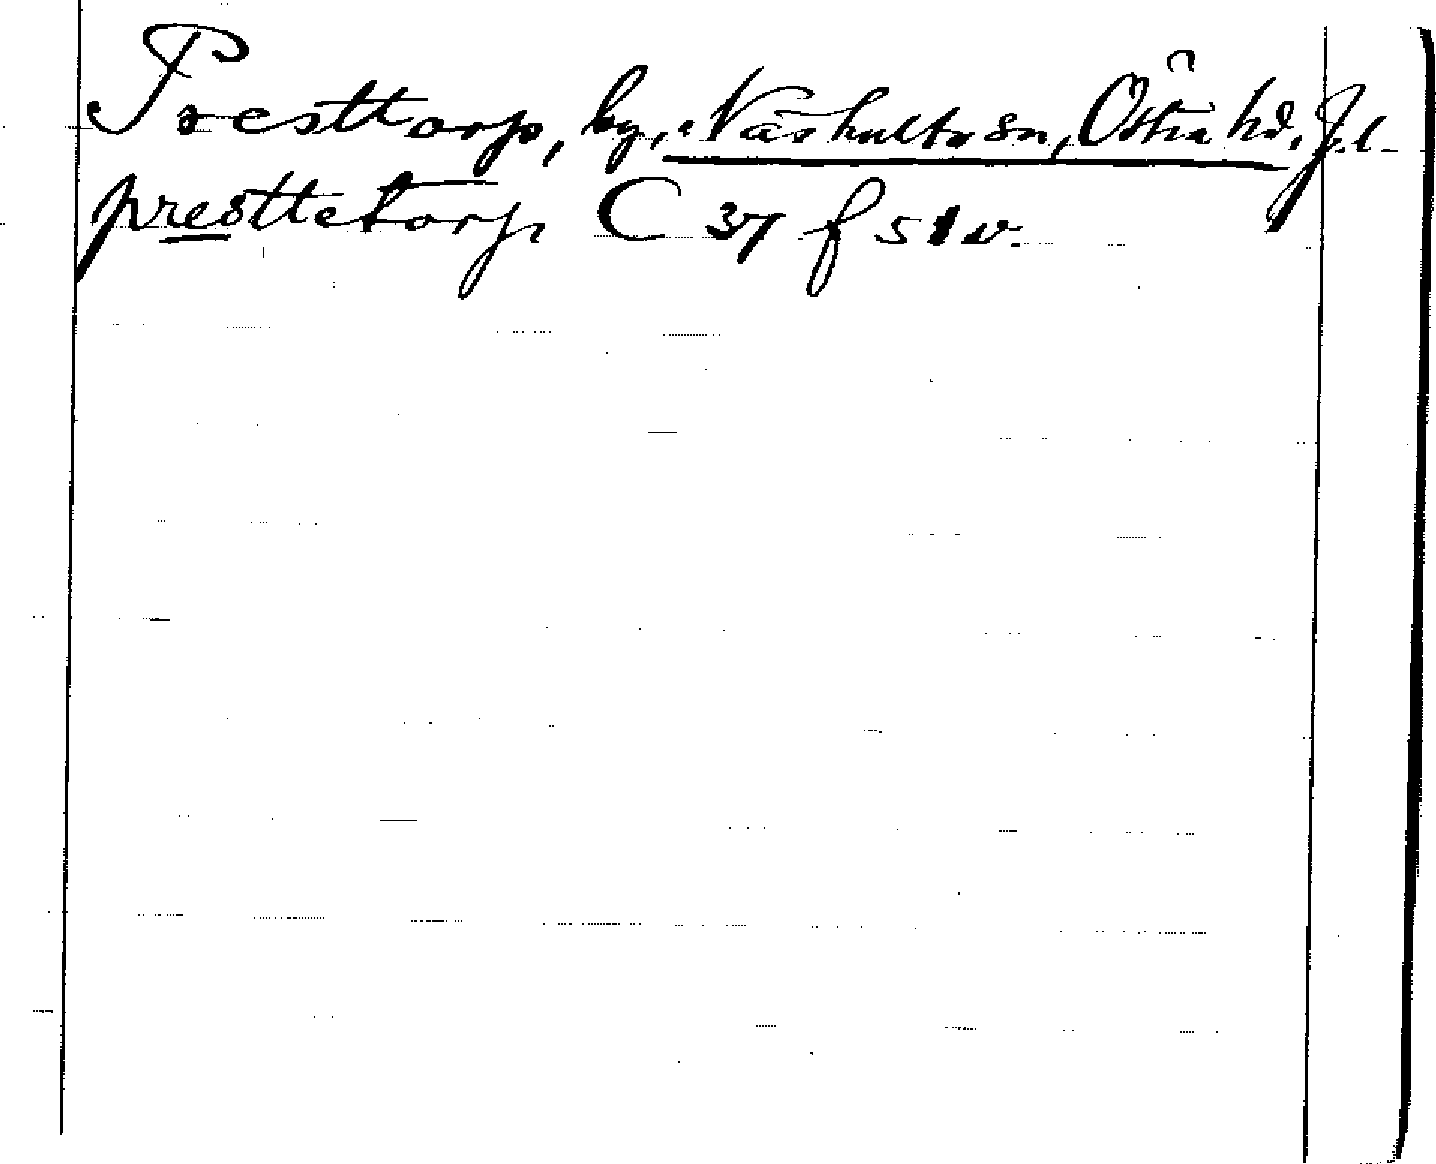 Presttorp, by, Näshults sn, Östra hd, Jkl.
presttetorp C 37 f 51 v.